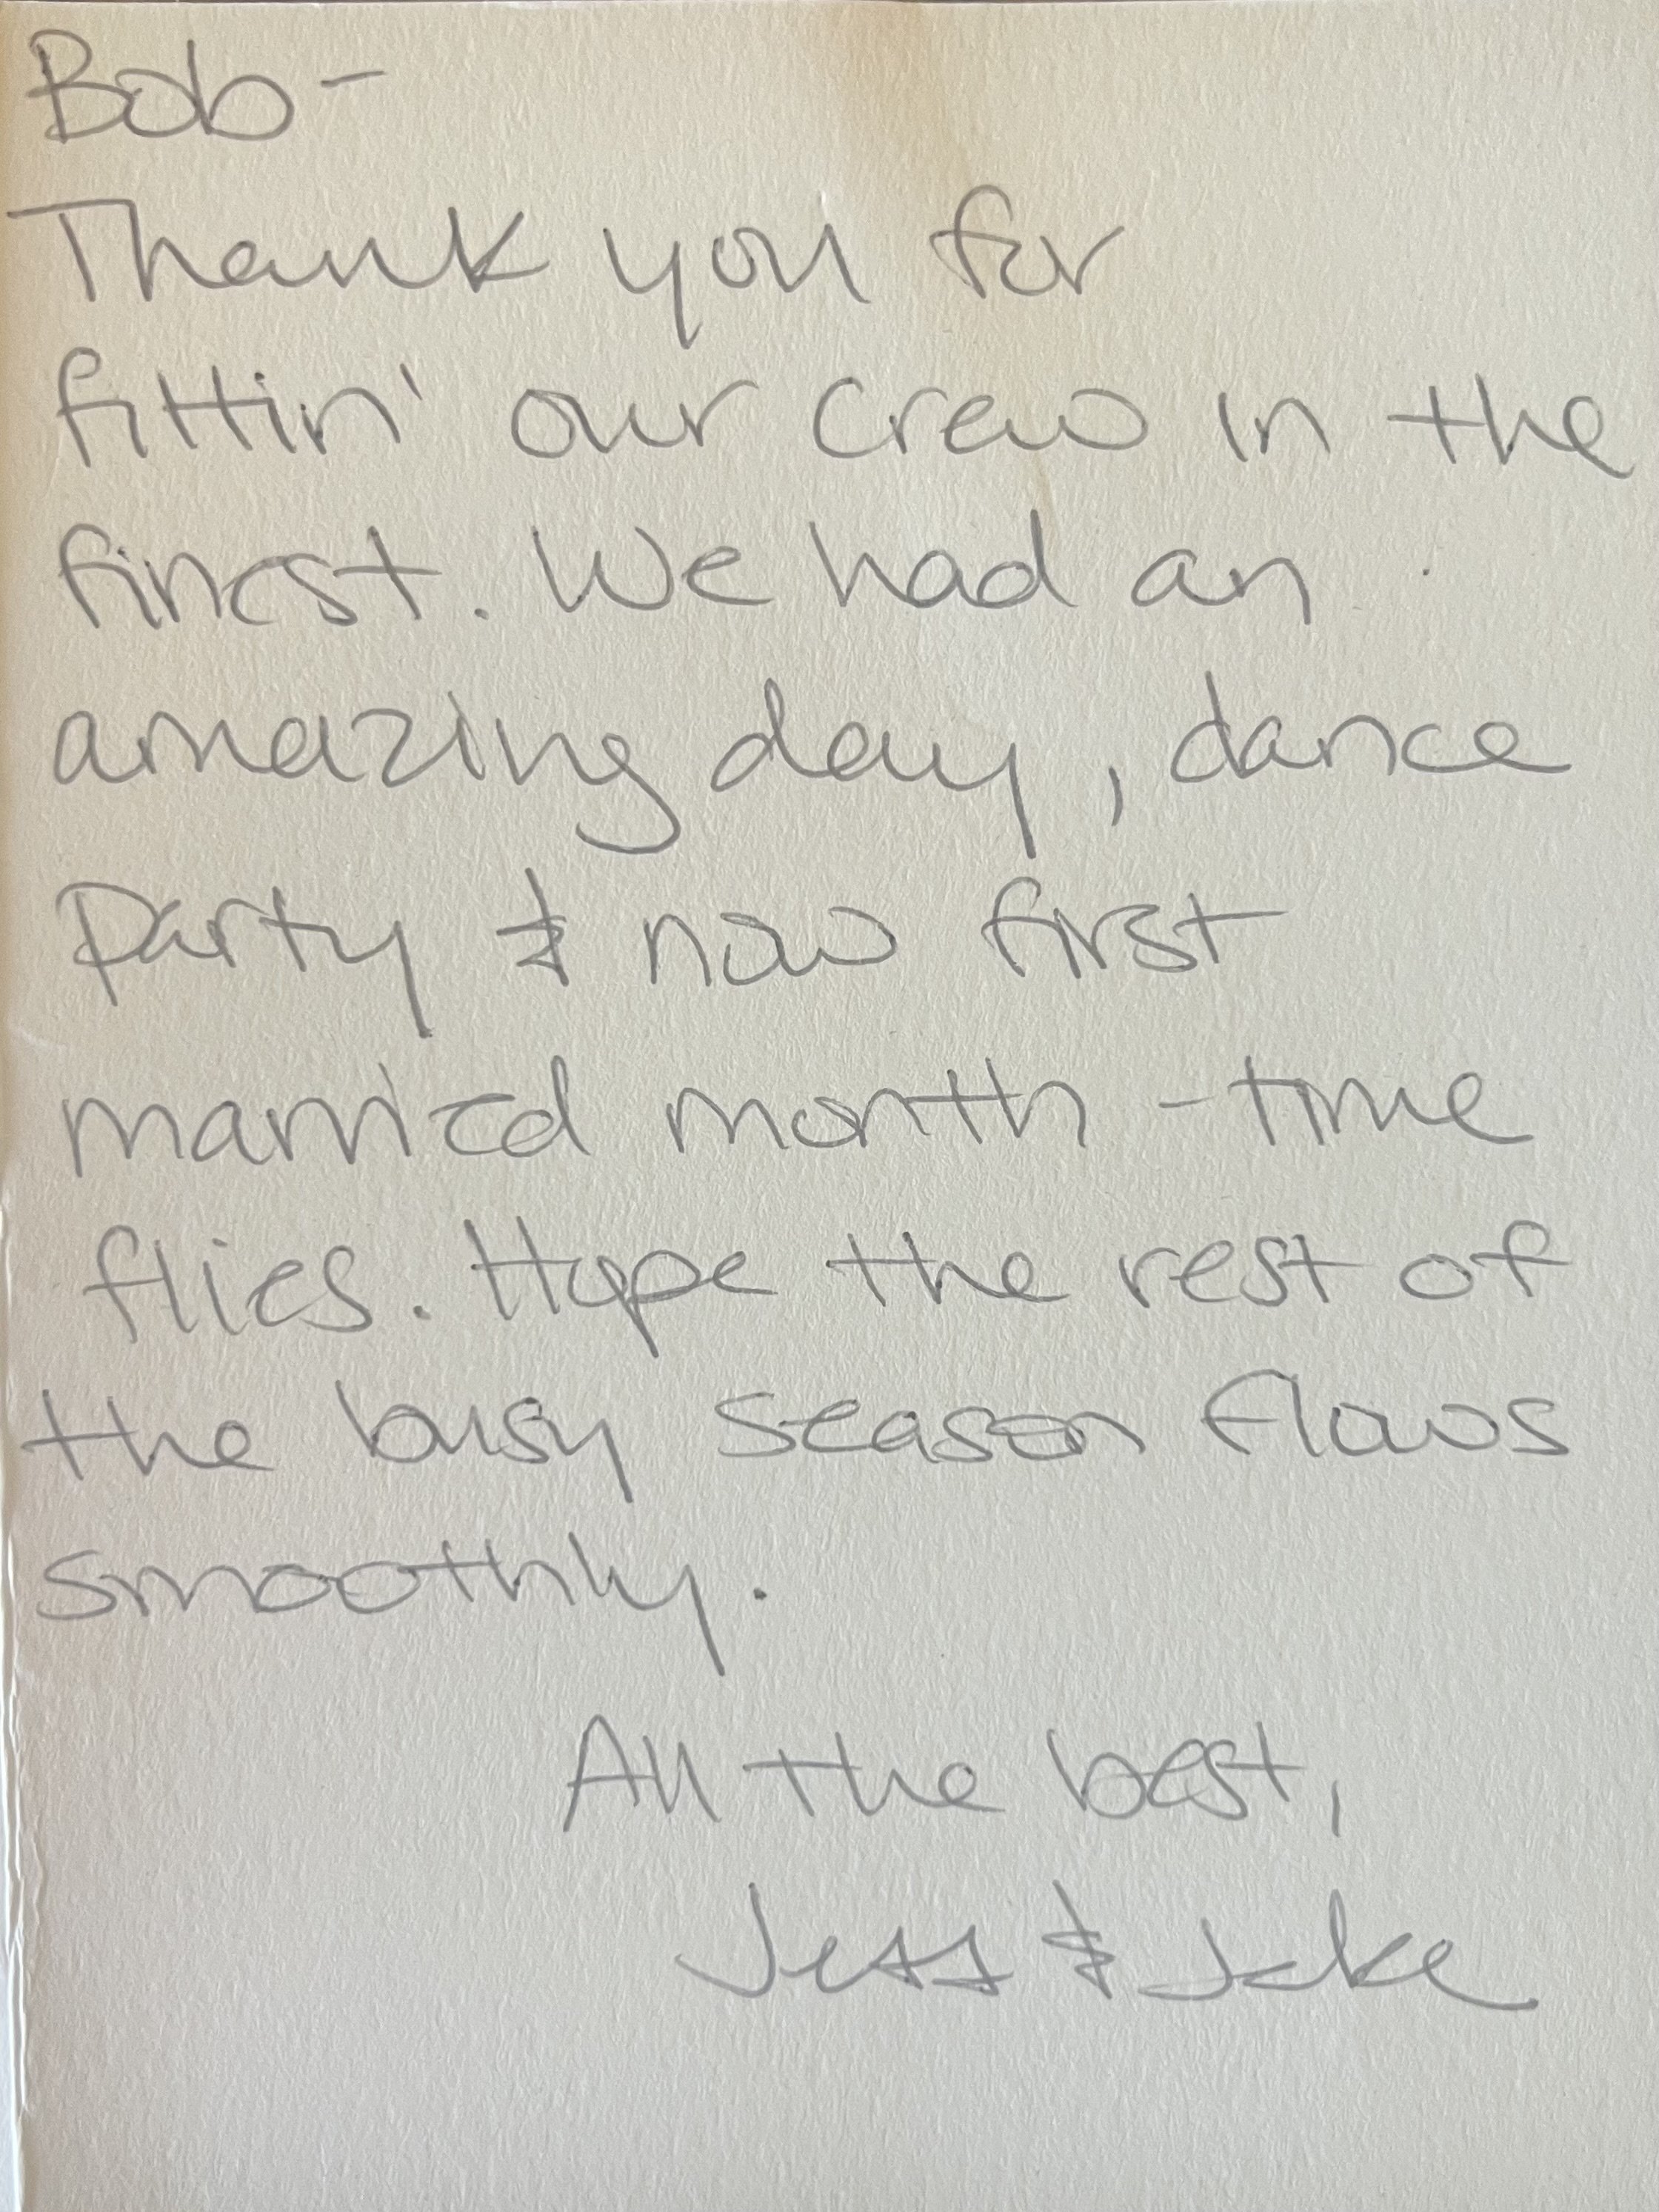 Bob-
Thank you for
fittin' our crew in the
finest. We had an
amazing day, dance
party & now first
married month - time
flies. Hope the rest of
the busy season flows
smoothly.
All the best,
Jess & Jake